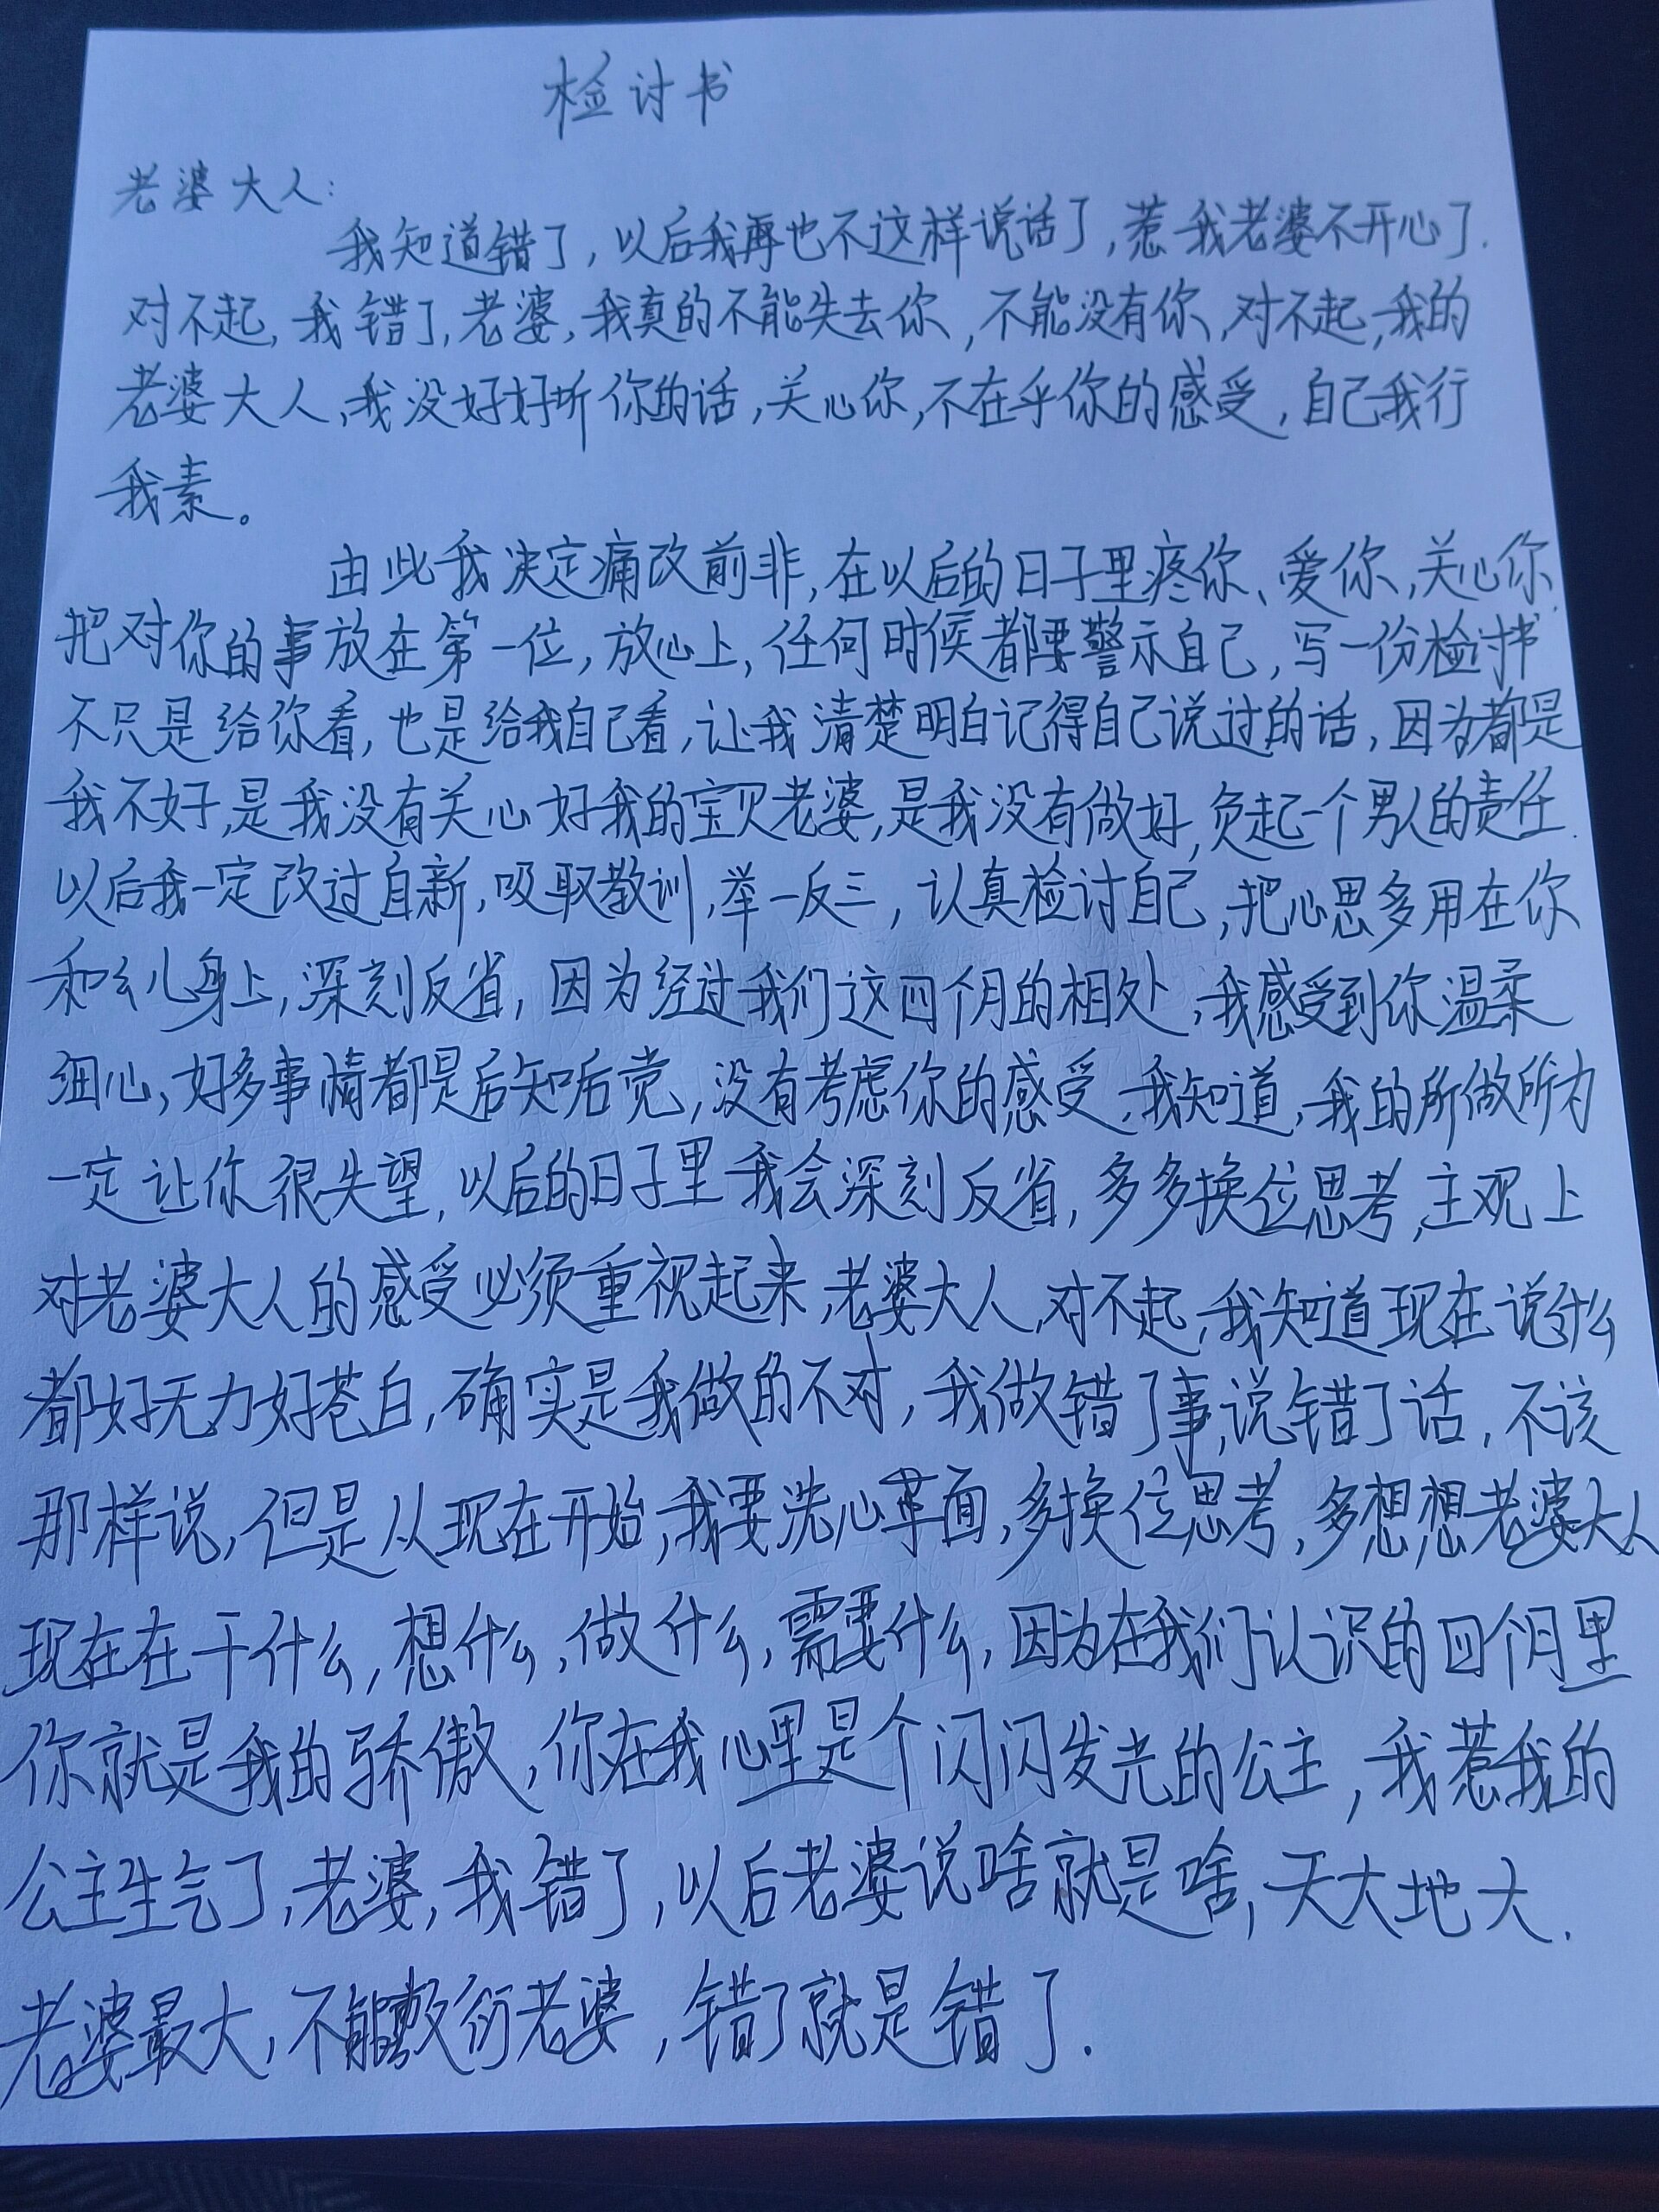 检讨书
老婆大人:
我知道错了,以后我再也不这样说话了,惹我老婆不开心了.
对不起,我错了,老婆,我真的不能失去你,不能没有你,对不起,我的
老婆大人,我没好好听你的话,关心你,不在乎你的感受,自己我行
我素。
由此我决定痛改前非,在以后的日子里疼你、爱你,关心你,
把对你的事放在第一位,放心上,任何时候都要警示自己,写一份检讨书
不只是给你看,也是给我自己看,让我清楚明白记得自己说过的话,因为都是
我不好,是我没有关心好我的宝贝老婆,是我没有做好,负起一个男人的责任.
以后我一定改过自新,吸取教训,举一反三,认真检讨自己,把心思多用在你
和幺儿身上,深刻反省,因为经过我们这四个月的相处,我感受到你温柔
细心,好多事情都是后知后觉,没有考虑你的感受,我知道,我的所做所为
一定让你很失望,以后的日子里我会深刻反省,多多换位思考,主观上
对老婆大人的感受必须重视起来,老婆大人,对不起,我知道现在说什么
都好无力好苍白,确实是我做的不对,我做错了事,说错了话,不该
那样说,但是从现在开始,我要洗心革面,多换位思考,多想想老婆大人
现在在干什么,想什么,做什么,需要什么,因为在我们认识的四个月里
你就是我的骄傲,你在我心里是个闪闪发光的公主,我惹我的
公主生气了,老婆,我错了,以后老婆说啥就是啥,天大地大.
老婆最大,不能敷衍老婆,错了就是错了.